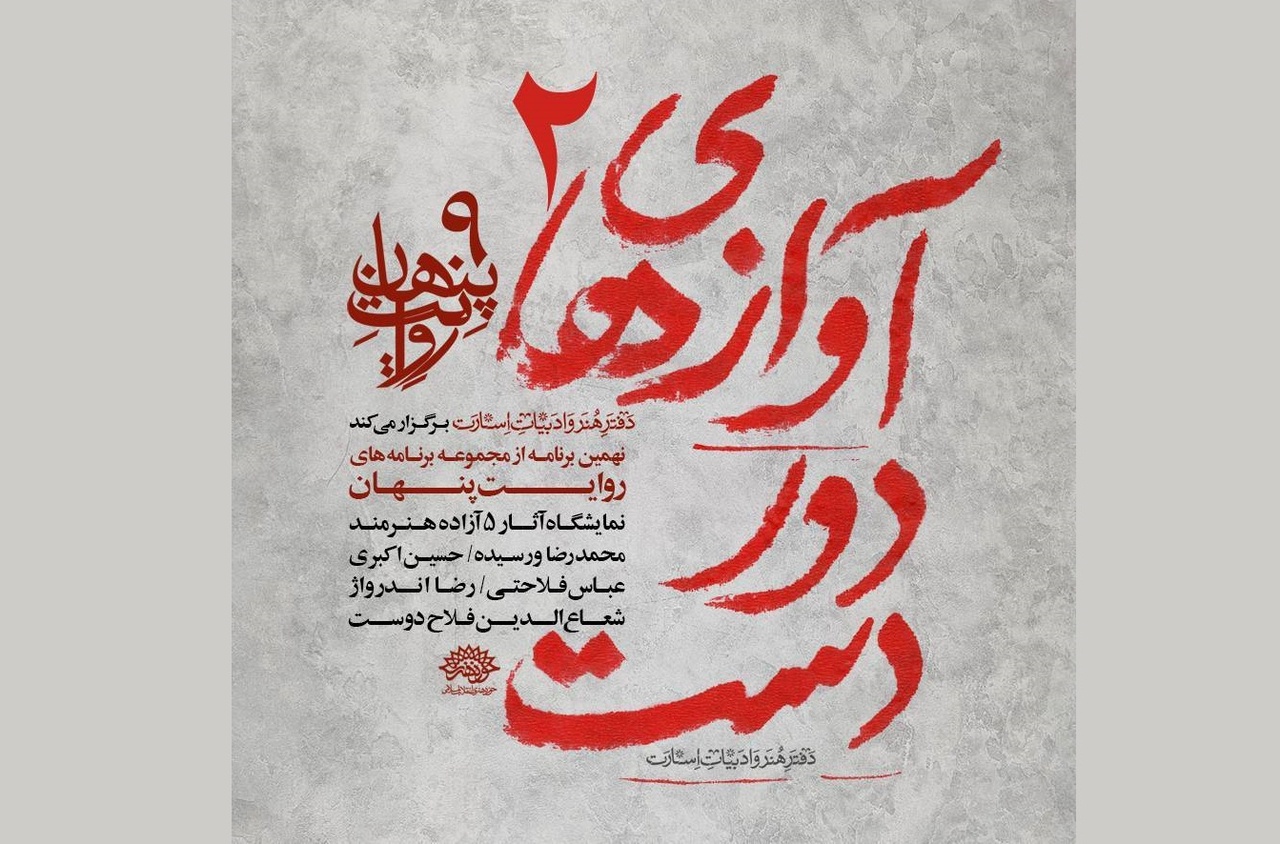 آوازهای ۲
دور
دست
روایت پنهان ۹
دفتر هنر و ادبیات اسارت برگزار می‌کند
نهمین برنامه از مجموعه برنامه‌های
روایت پنهان
نمایشگاه آثار ۵ آزاده هنرمند
محمدرضا ورسیده / حسین اکبری
عباس فلاحتی / رضا اندرواژ
شعاع‌الدین فلاح دوست
حوزه هنری
حوزه هنری انقلاب اسلامی
دفتر هنر و ادبیات اسارت